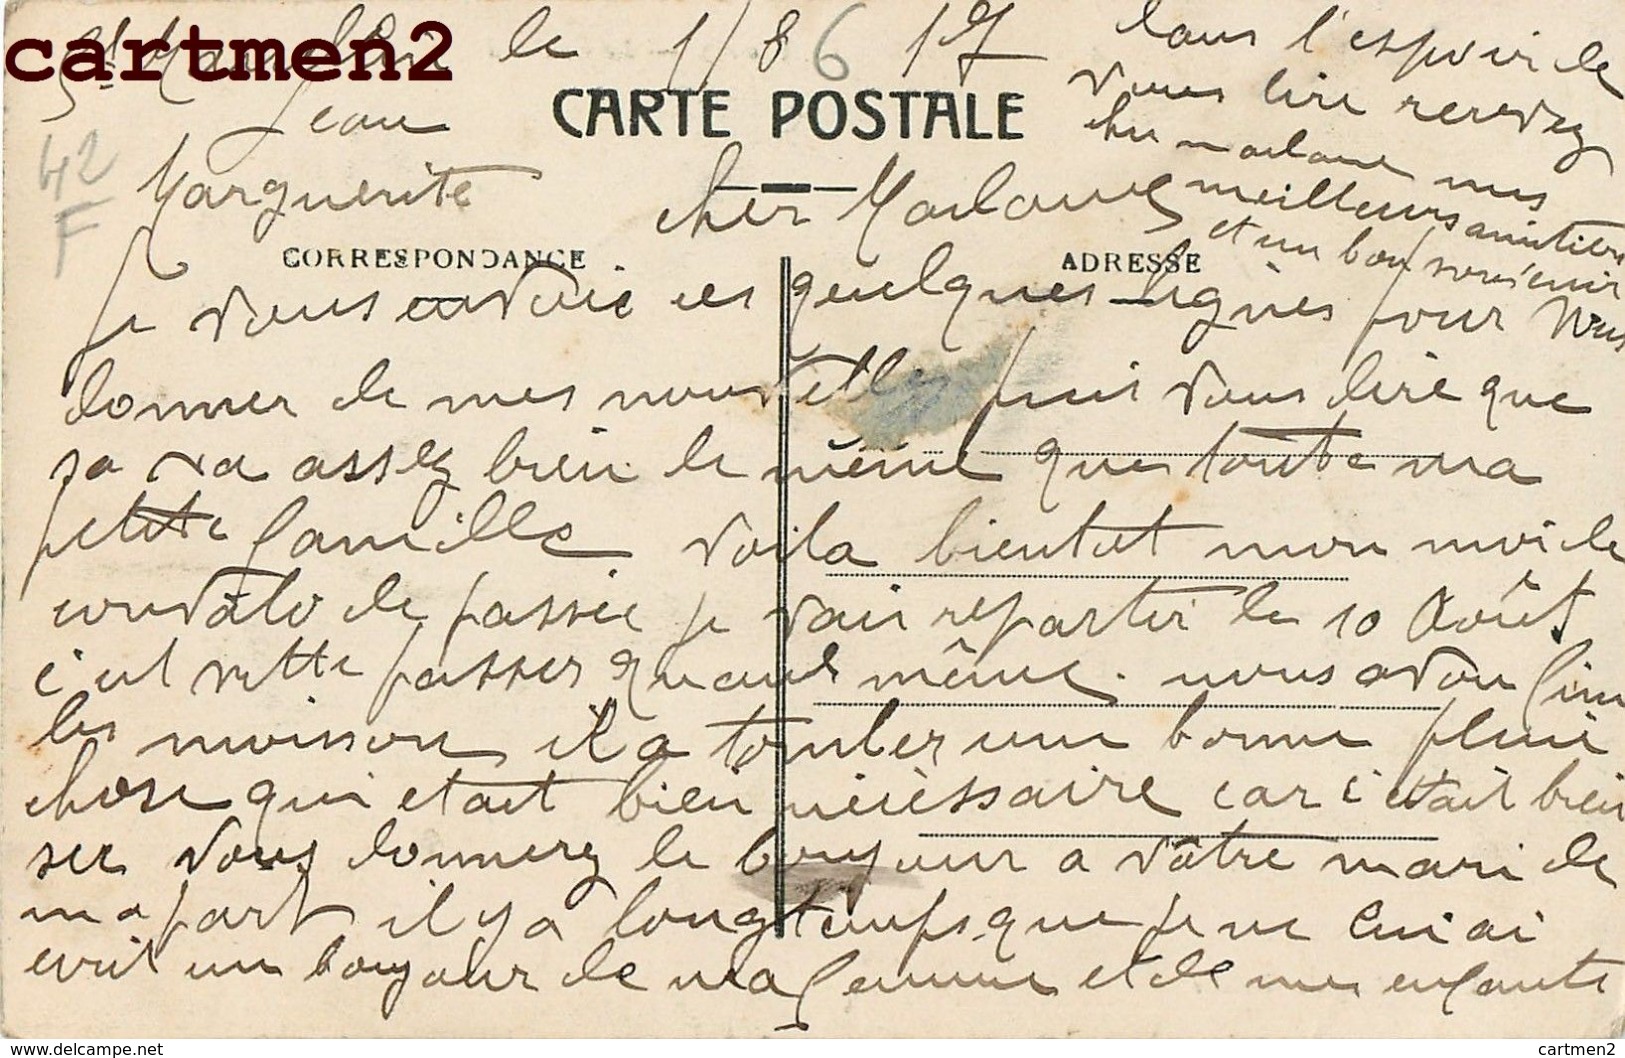 cartmen2
le 1/8 17
Jean
Marguerite
CARTE POSTALE
42
F
CORRESPONDANCE
ADRESSE
cher Madame
je vous envoie ces quelques lignes pour vous
donner de mes nouvelles puis vous dire que
sa va assez bien le même que toute ma
petite famille voila bientot mon moi de
convalo de passée je vais repartir le 10 Août
c'est vitte passer quand même. nous avon fini
les moisson il a tomber une bonne pluie
chose qui etait bien nécèssaire car c'etait bien
sec vous donnerez le bonjour a vôtre mari de
ma part il y a longtemps que je ne lui ai
ecrit un bonjour de ma femme et de mes enfants
dans l'espoir de
vous lire recevez
cher madame mes
meilleurs amitiers
et un bon souvenir
www.delcampe.net
cartmen2